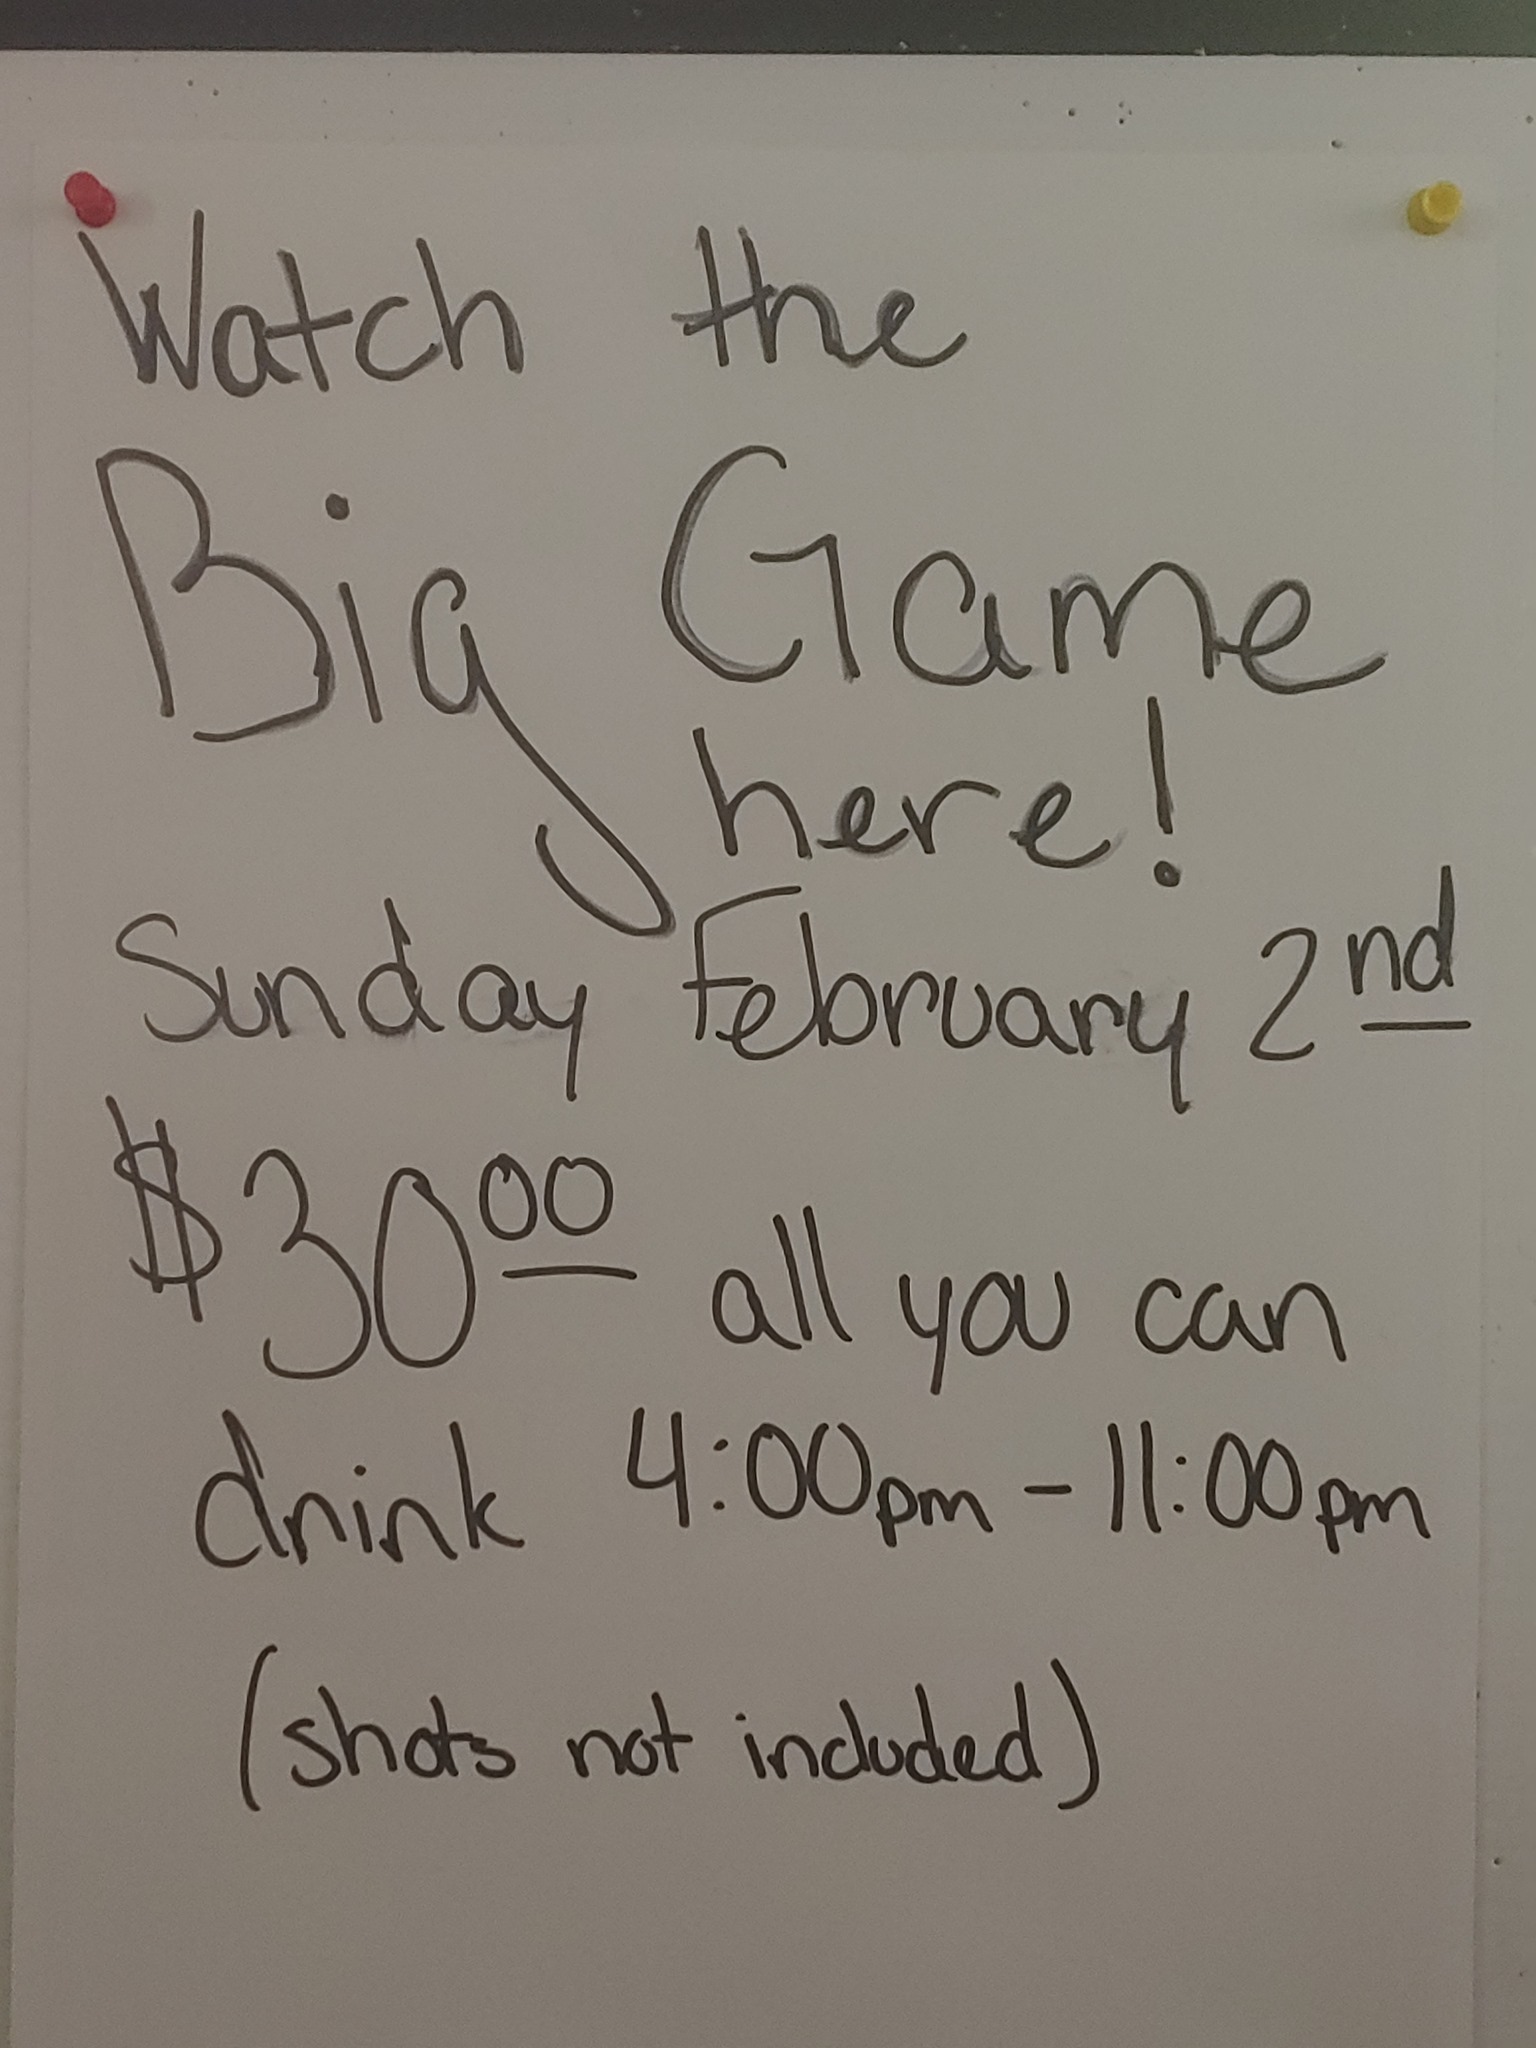 Watch the
Big Game
here!
Sunday February 2nd
$3000 all you can
drink 4:00pm - 11:00pm
(shots not included)